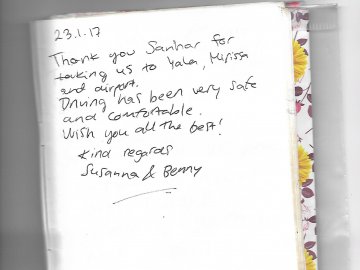 23.1.17
Thank you Sanhar for
taking us to Yala, Mirissa
and airport.
Driving has been very safe
and comfortable.
Wish you all the best!
Kind regards
Susanna & Benny